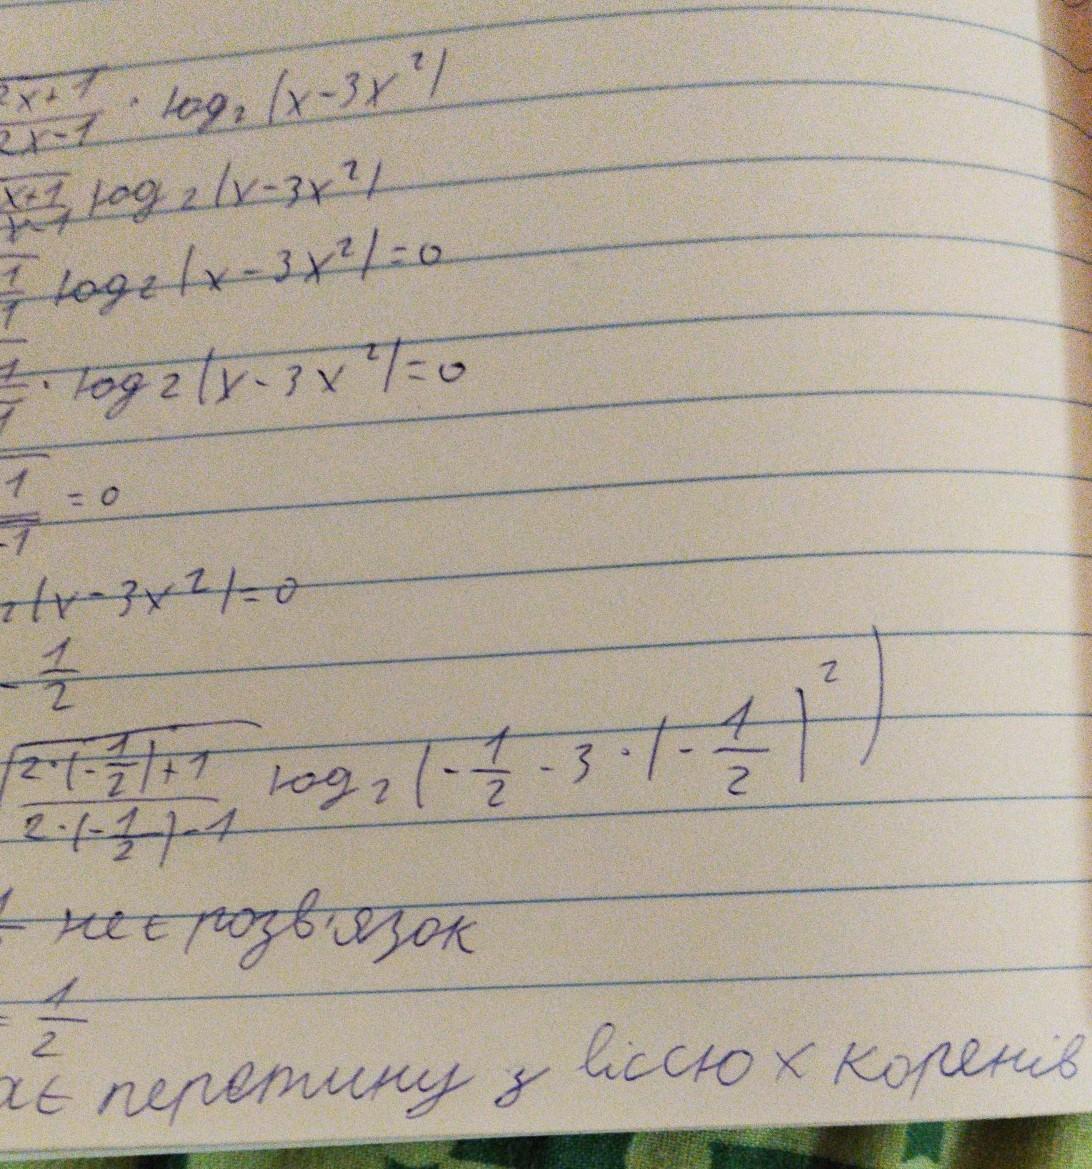 2x+1/2x-1 · log₂(x-3x²)
x+1/x-1 log₂(x-3x²)
1/1 log₂(x-3x²)=0
1/1 · log₂(x-3x²)=0
1/-1 =0
₂(x-3x²)=0
- 1/2
√(2·(-1/2)+1 / 2·(-1/2)-1) log₂(-1/2-3·(-1/2)²)
не є розв'язок
= 1/2
ає перетину з віссю x коренів